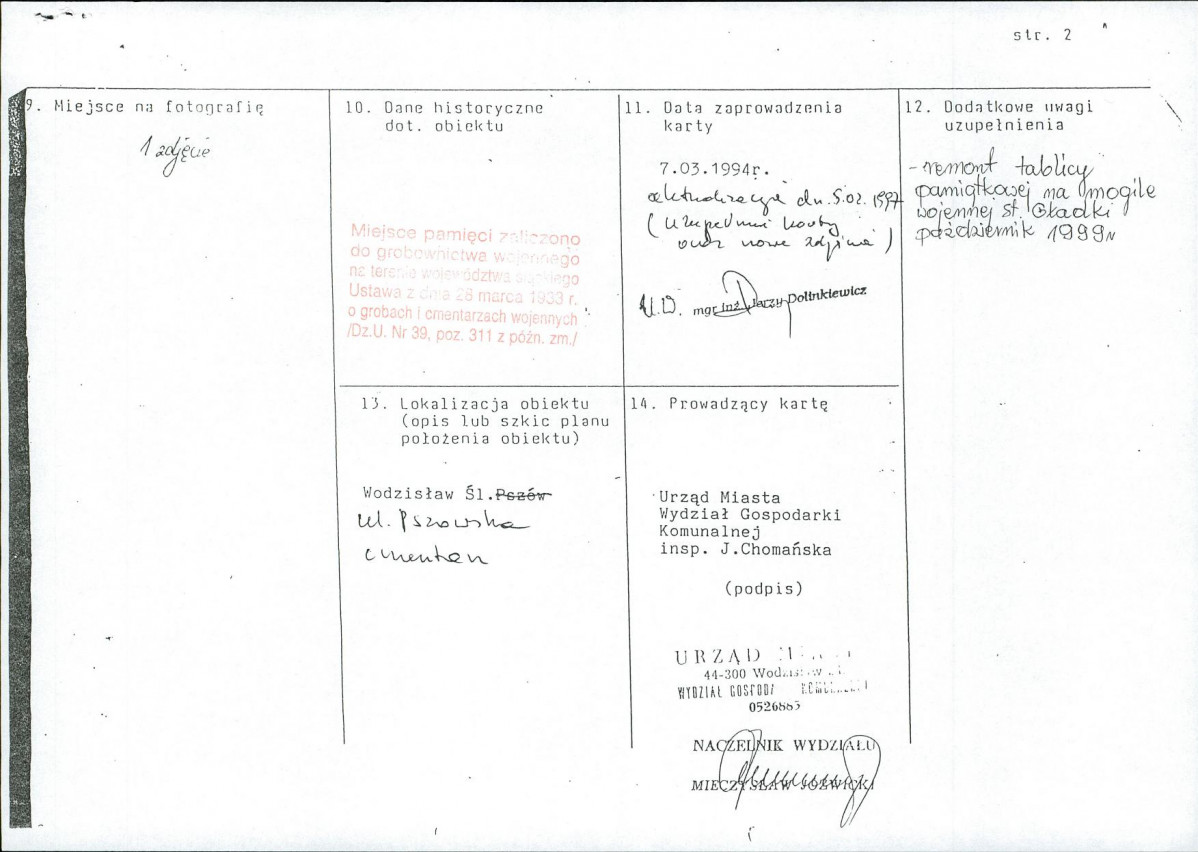 str. 2
9. Miejsce na fotografię
1 zdjęcie
10. Dane historyczne
dot. obiektu
Miejsce pamięci zaliczono
do grobownictwa wojennego
na terenie województwa śląskiego
Ustawa z dnia 28 marca 1933 r.
o grobach i cmentarzach wojennych
/Dz.U. Nr 39, poz. 311 z późn. zm./
11. Data zaprowadzenia
karty
7.03.1994r.
aktualizacja dn. 5.02.1997
(uzupełnić karty
oraz nowe zdjęcia)
mgr inż. Jerzy Polinkiewicz
12. Dodatkowe uwagi
uzupełnienia
- remont tablicy
pamiątkowej na mogile
wojennej st. Gładki
październik 1999r
13. Lokalizacja obiektu
(opis lub szkic planu
położenia obiektu)
Wodzisław Śl. Pszów
ul. Pszowska
cmentarz
14. Prowadzący kartę
Urząd Miasta
Wydział Gospodarki
Komunalnej
insp. J.Chomańska
(podpis)
URZĄD
44-300 Wodzisław
WYDZIAŁ
0526885
NACZELNIK WYDZIAŁU
MIECZYSŁAW JÓŹWICKI